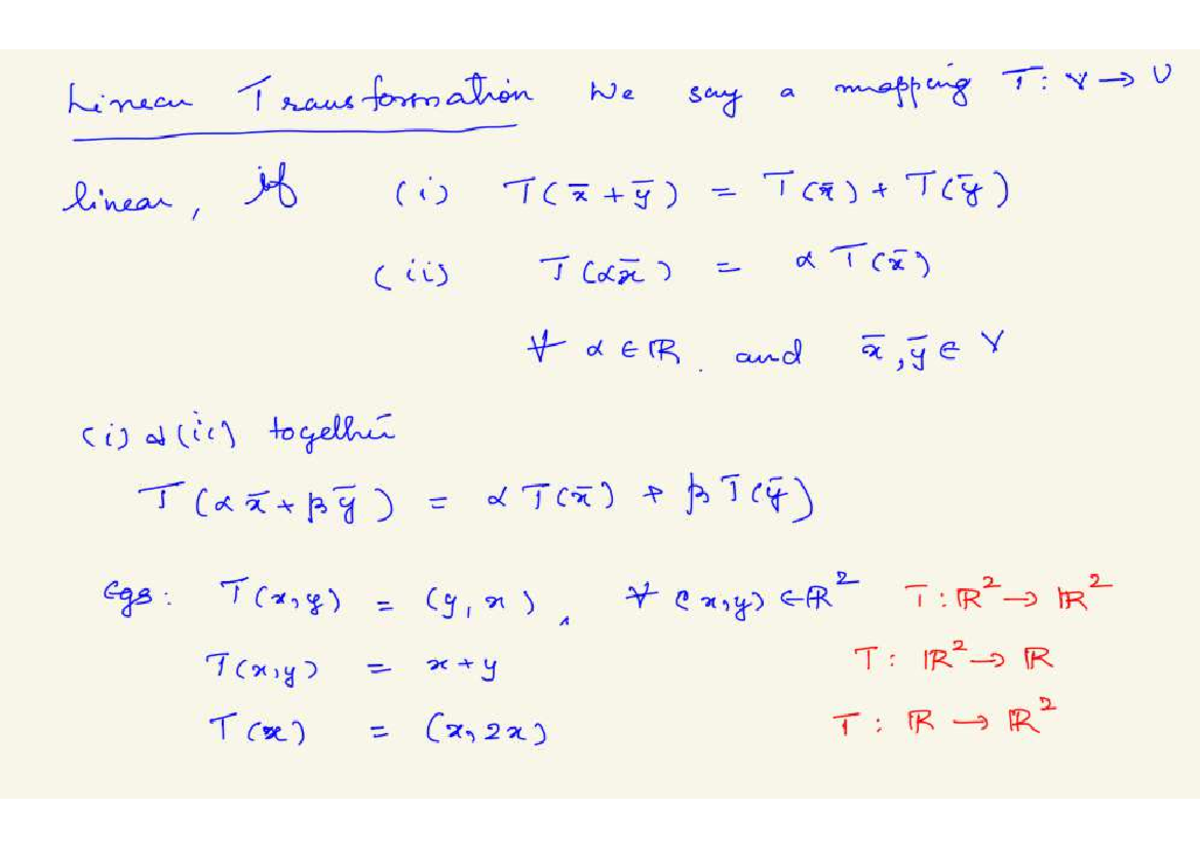 Linear Transformation We say a mapping T: V → U
linear, if (i) T(x̄ + ȳ) = T(x̄) + T(ȳ)
(ii) T(αx̄) = αT(x̄)
∀ α ∈ ℝ. and x̄, ȳ ∈ V
(i) & (ii) together
T(αx̄ + βȳ) = αT(x̄) + βT(ȳ)
Egs: T(x,y) = (y, x), ∀ (x,y) ∈ ℝ² T: ℝ² → ℝ²
T(x,y) = x + y T: ℝ² → ℝ
T(x) = (x, 2x) T: ℝ → ℝ²